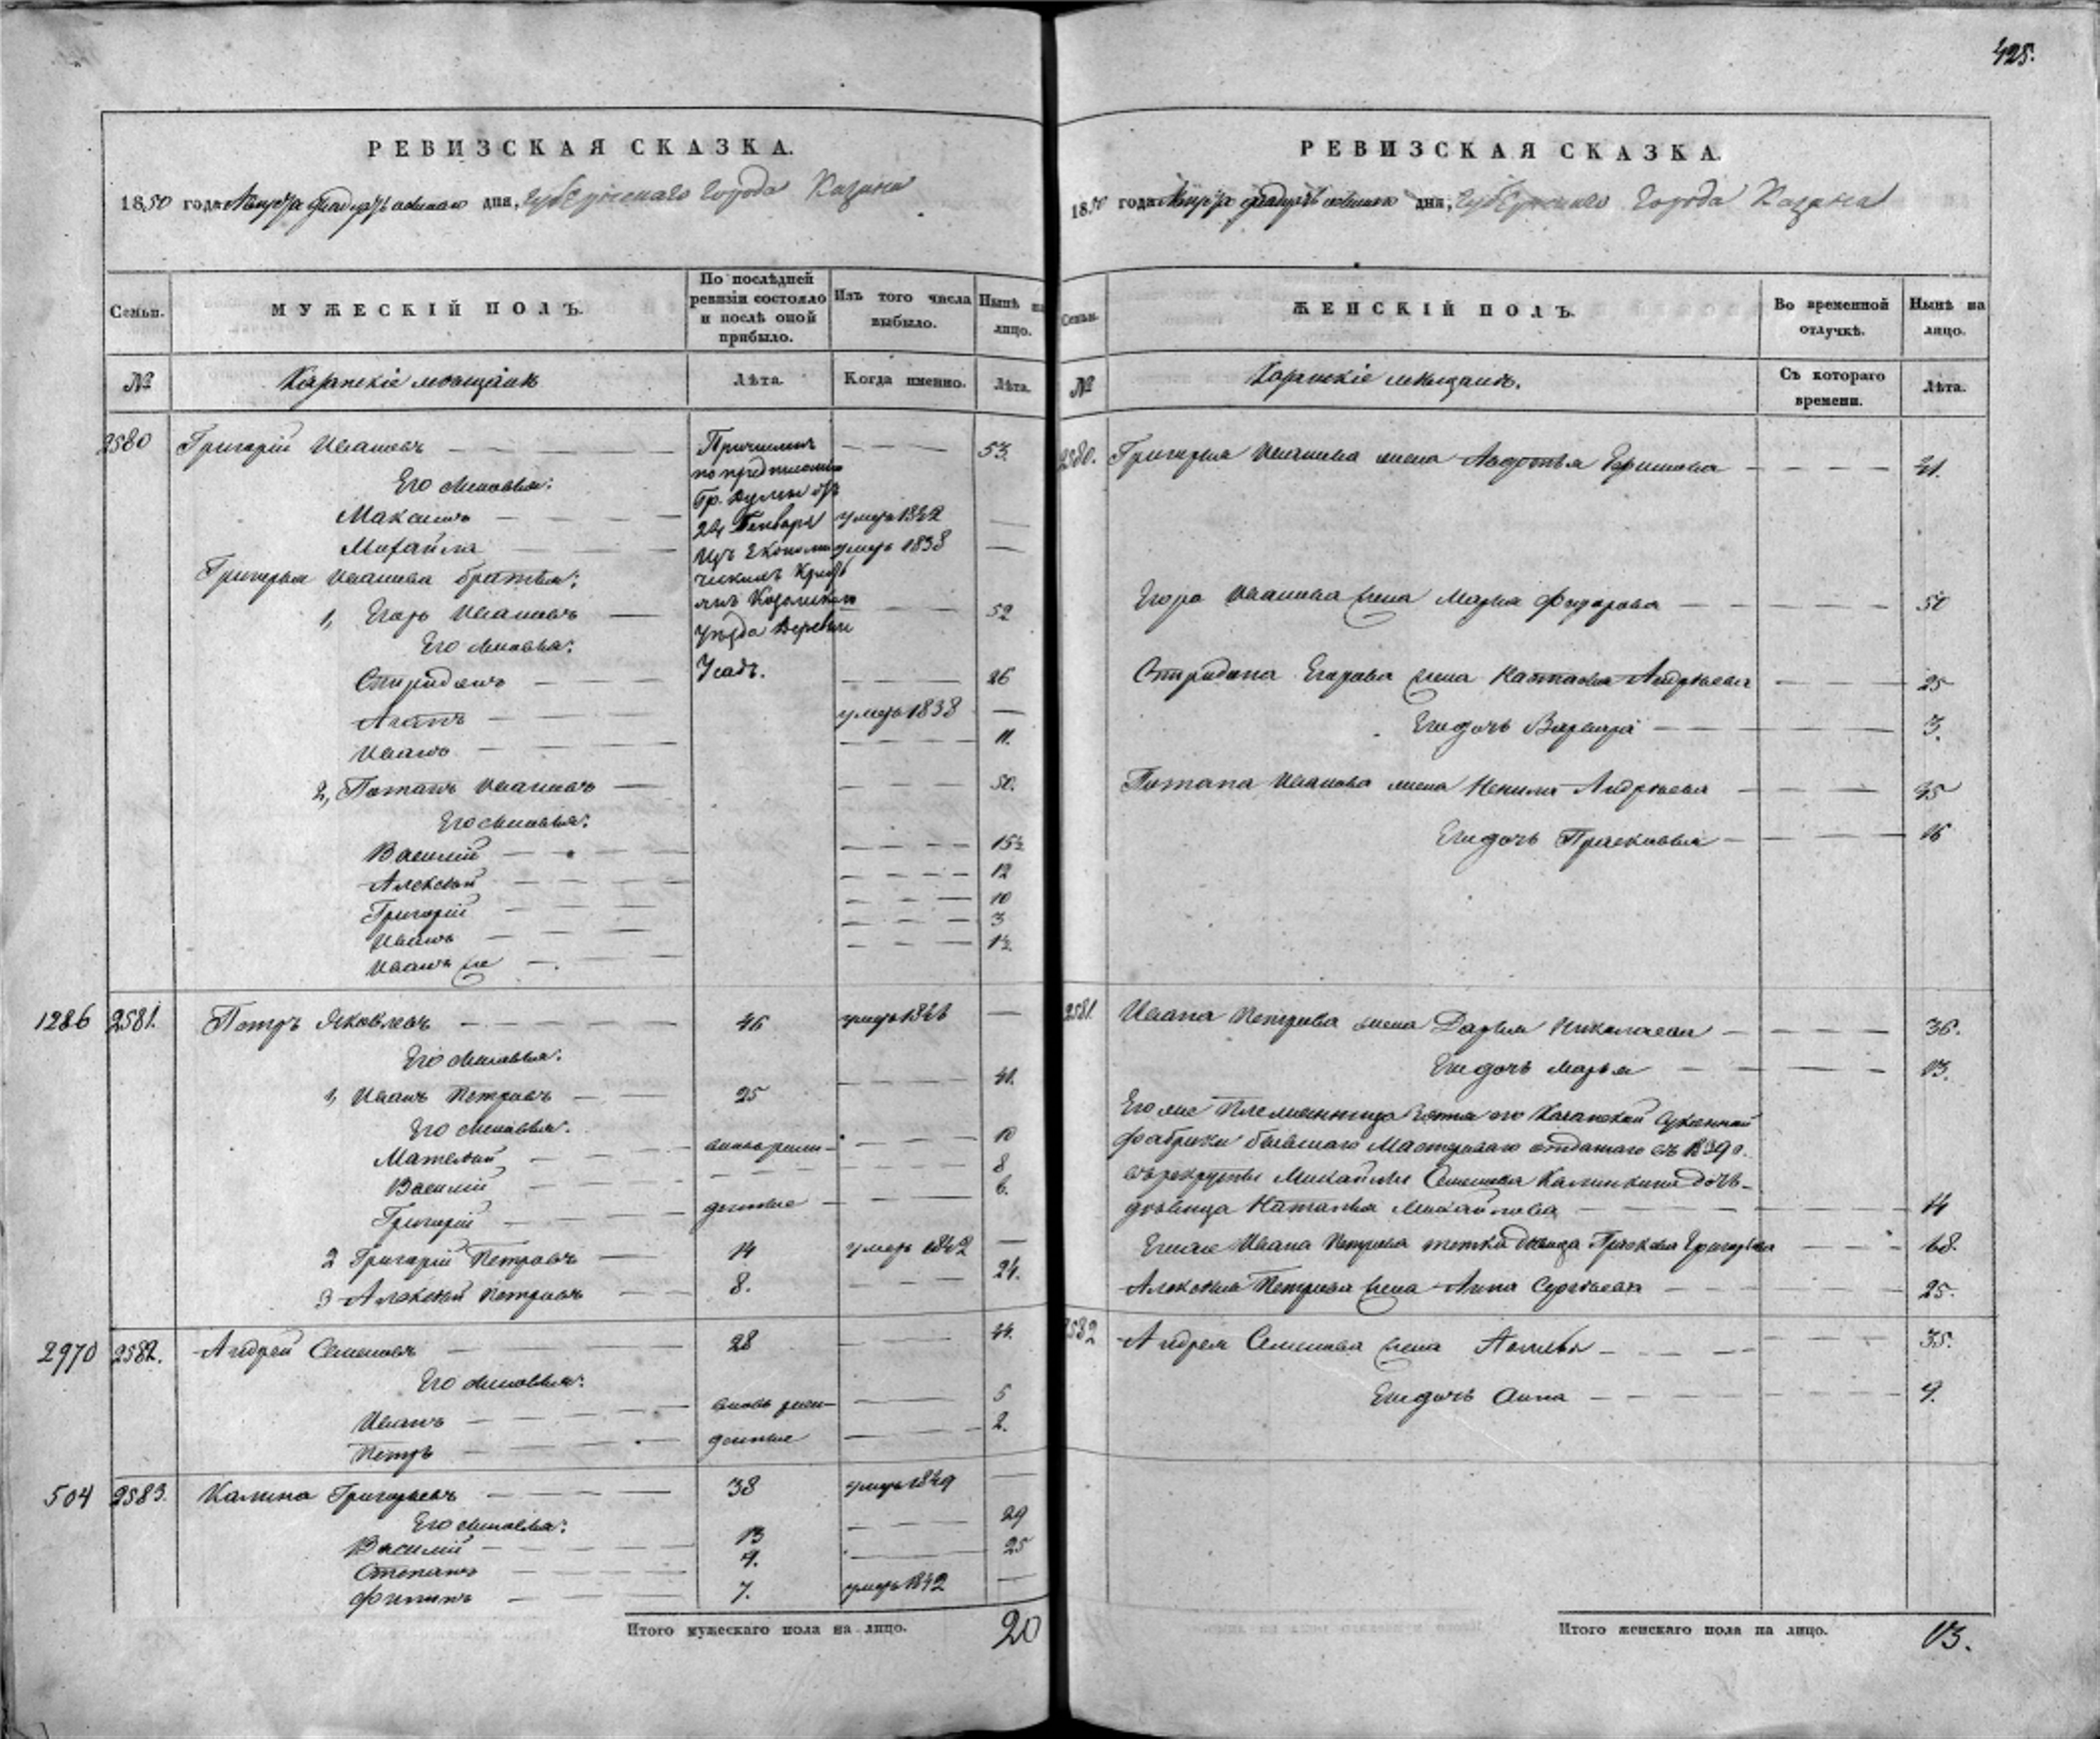 425.
РЕВИЗСКАЯ СКАЗКА.
1850 года Августа двадцать осьмаго дня, Губернскаго Города Казани
Семьи.
МУЖЕСКІЙ ПОЛЪ.
По послѣдней ревизіи состояло и послѣ оной прибыло.
Изъ того числа выбыло.
Нынѣ на лицо.
№
Казанскіе мѣщане
Лѣта.
Когда именно.
Лѣта.
2580 Григорій Ивановъ 53.
Причислен
по предписанію
Гр. Думы отъ
24 Генваря
Изъ Економи
ческихъ Кресть
янъ Козмодем
уѣзда Деревни
Усадъ.
Его сыновья:
Максимъ умеръ 1842
Михайла умеръ 1838
Григорья Иванова братья:
1, Егоръ Ивановъ 52
Его сыновья:
Спиридонъ 26
Агапъ умеръ 1838
Иванъ 11.
2, Потапъ Ивановъ 50.
Его сыновья:
Василій 15½
Алексѣй 12
Григорій 10
Иванъ 3
Иванъ же 1½
1286 2581. Петръ Яковлевъ 46 умеръ
Его сыновья:
1, Иванъ Петровъ 25 41.
Его сыновья:
Матвѣй вновь рож- 10
Василій 8
Григорій денные 6.
2 Григорій Петровъ 14 умеръ 1842
3 Алексѣй Петровъ 8. 24.
2970 2582. Андрей Семеновъ 28 44.
Его сыновья:
Иванъ вновь рож- 5
Петръ денные 2.
504 2583. Калина Григорьевъ 38 умеръ 1849
Его сыновья:
Василій 13 29
Степанъ 9. 25
Филипъ 7. умеръ 1842
Итого мужескаго пола на лицо. 20
РЕВИЗСКАЯ СКАЗКА.
1850 года Августа двадцать осьмаго дня, Губернскаго Города Казани
Семьи.
ЖЕНСКІЙ ПОЛЪ.
Во временной отлучкѣ.
Нынѣ на лицо.
№
Казанскіе мѣщане.
Съ котораго времени.
Лѣта.
2580. Григорья Иванова жена Авдотья Ефимова 41.
Егора Иванова жена Марья Федорова 50
Спиридона Егорова жена Наталья Андреева 25
Ея дочь Варвара 3.
Потапа Иванова жена Андреева 45
Ея дочь Прасковья 16
2581. Ивана Петрова жена Дарья Николаева 36.
Ея дочь Марья 13.
Его же Племянница взята изъ Казанской Суконной
фабрики бывшаго Мастероваго отданаго въ 1839 г.
въ рекруты Михайлы Семенова Калинкина дочь-
дѣвица Наталья Михайлова 14
Ево же Ивана Петрова тетка дѣвица Прасковья Григорьева 68.
Алексѣя Петрова жена Анна Сергѣева 25.
2582 Андрея Семенова жена 35.
Ея дочь Анна 9.
Итого женскаго пола на лицо. 13.